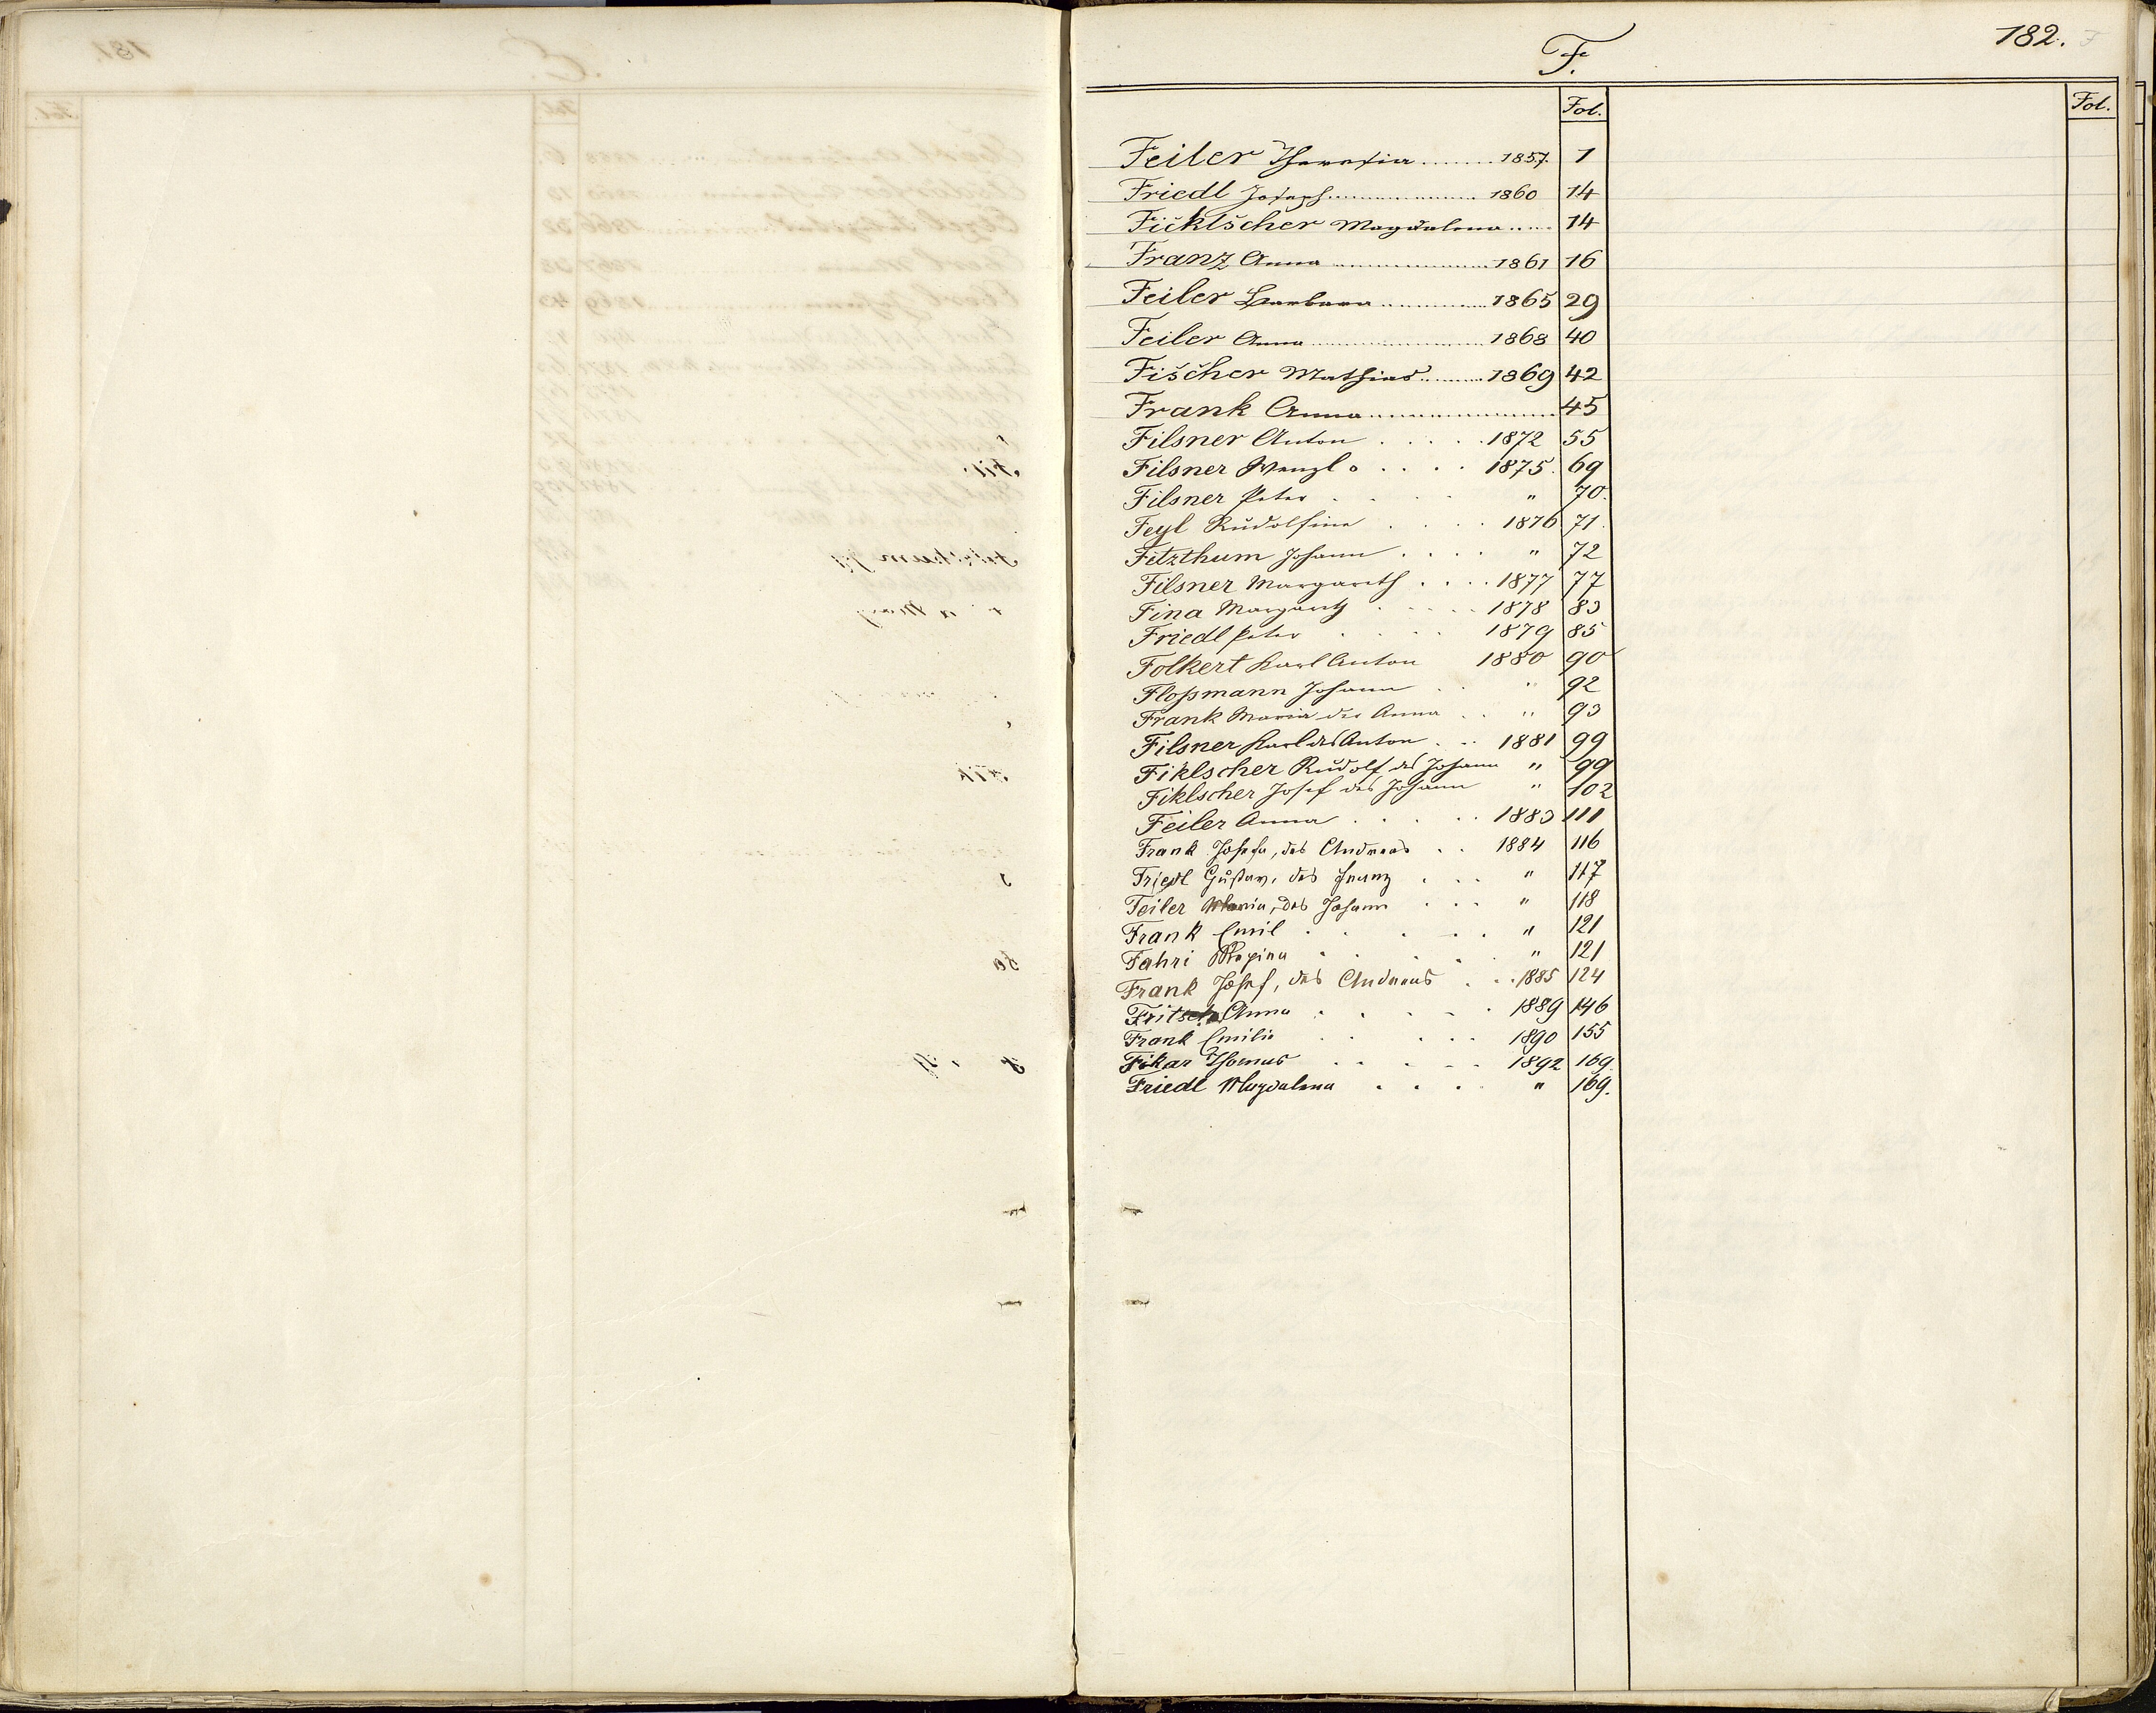 182.
F.
Fol. Fol.
Feiler Theresia ........ 1857. 1
Friedl Joseph ................ 1860 14
Ficklscher Magdalena ..... 14
Franz Anna ................ 1861 16
Feiler Barbara ............ 1865 29
Feiler Anna .................... 1868 40
Fischer Mathias .......... 1869 42
Frank Anna .................... 45
Filsner Anton . . . . 1872 55
Filsner Wenzl . . . . 1875. 69
Filsner Peter . . . . " 70.
Feyl Rudolfine . . . . 1876 71.
Fitzthum Johann . . . . " 72
Filsner Margareth . . . . 1877 77
Fina Margareth . . . . 1878 83
Friedl Peter . . . . 1879 85
Folkert Karl Anton 1880 90
Floßmann Johann . . " 92
Frank Maria der Anna . . " 93
Filsner Karl des Anton . . . 1881 99
Fiklscher Rudolf des Johann " 99
Fiklscher Josef des Johann " 102
Feiler Anna . . . . . 1883 111
Frank Josefa, des Andreas . . 1884 116
Friedl Gustav, des Franz . . . " 117
Feiler Maria, des Johann . . . " 118
Frank Emil . . . . " 121
Fahri Regina . . . . " 121
Frank Josef, des Andreas . . . 1885 124
Fritsch Anna . . . . . 1889 146
Frank Emilie . . . . . 1890 155
Fikar Thomas . . . . . 1892 169.
Friedl Magdalena . . . . " 169.